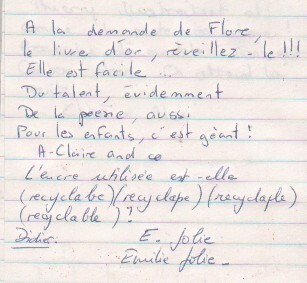 A la demande de Flore,
le livre d'or, réveillez-le !!!
Elle est facile ...
Du talent, évidemment
De la poésie, aussi
Pour les enfants, c'est géant !
A-Claire and co
L'encre utilisée est-elle
(recyclabe) (recyclape) (recyclaple)
(recyclable) ?
Didier. E. Jolie
Emilie Jolie.